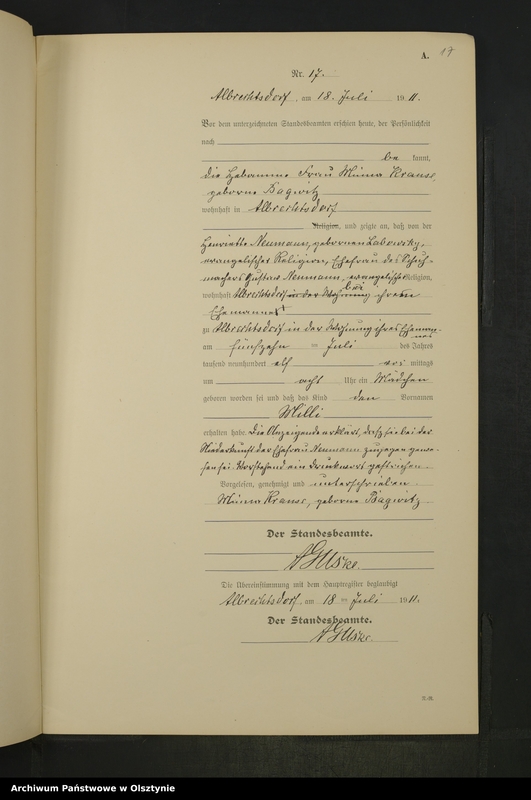 A.
19
Nr. 17.
Albrechtsdorf, am 18. Juli 1911.
Vor dem unterzeichneten Standesbeamten erschien heute, der Persönlichkeit
nach
be kannt,
die Hebamme Frau Minna Krause
geborne Bagwitz
wohnhaft in Albrechtsdorf
Religion, und zeigte an, daß von der
Henriette Neumann, gebornen Labowsky,
evangelischer Religion, Ehefrau des Schuh-
machers Gustav Neumann, evangelischer Religion,
wohnhaft Albrechtsdorf in der Wohnung bei ihrem
Ehemanne
zu Albrechtsdorf in der Wohnung ihres Eheman-
nes
am fünfzehn = Juli des Jahres
tausend neunhundert elf vor mittags
um acht Uhr ein Mädchen
geboren worden sei und daß das Kind den Vornamen
Milli
erhalten habe. Die Anzeigende erklärt, daß sie bei der
Niederkunft der Ehefrau Neumann zugegen gewe-
sen sei. Vorstehend ein Druckwort gestrichen.
Vorgelesen, genehmigt und unterschrieben.
Minna Krause, geborne Bagwitz
Der Standesbeamte.
Die Übereinstimmung mit dem Hauptregister beglaubigt
Albrechtsdorf, am 18 ten Juli 1911.
Der Standesbeamte.
Archiwum Państwowe w Olsztynie